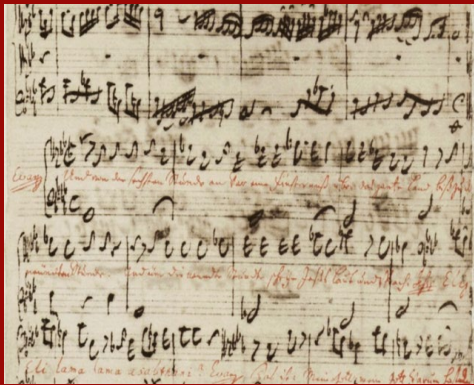 Evang. Und von der sechsten Stunde an war eine Finsterniß über das gantze Land
Stunde. Und um die neundte Stunde schrie Jesus laut und sprach Eli
Eli lama lama asabthani? Evang. Das ist: Mein Gott warum